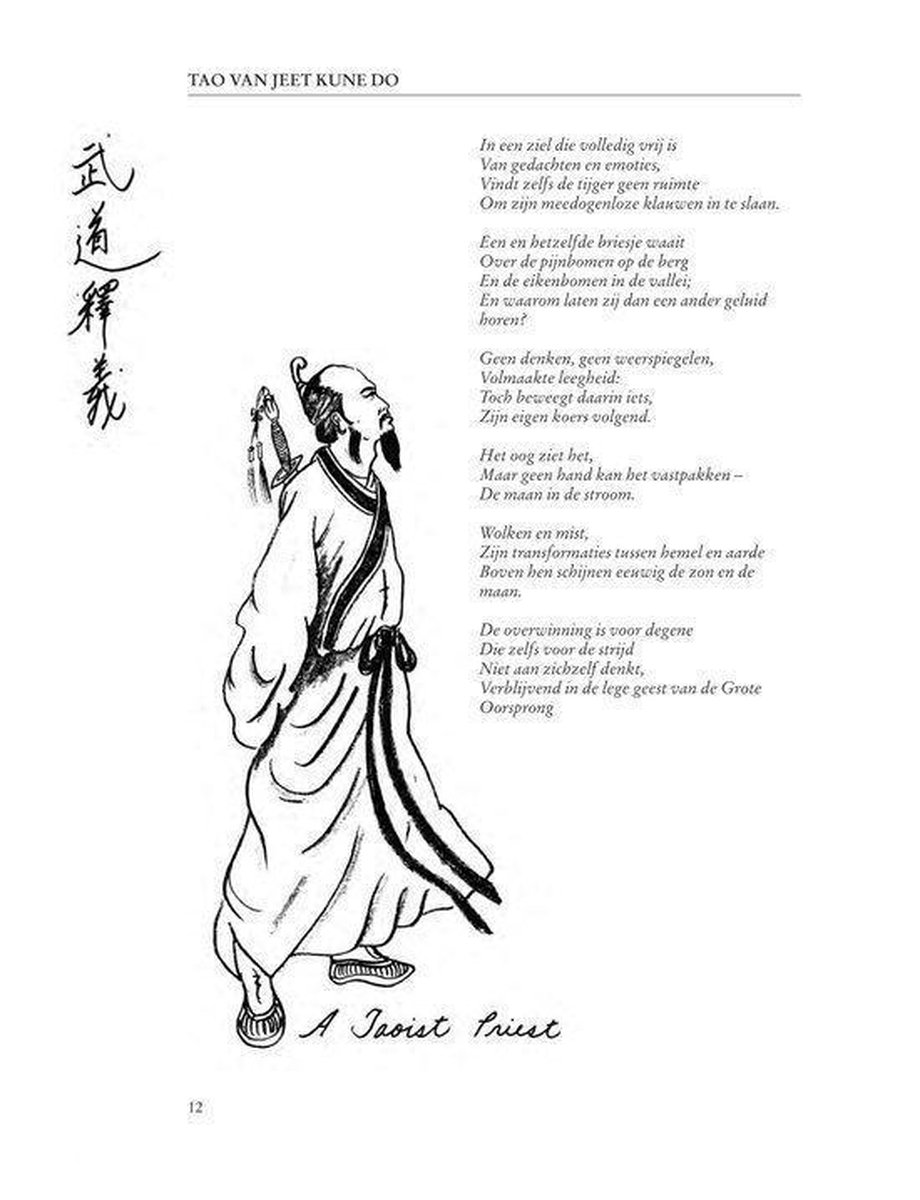 TAO VAN JEET KUNE DO
武道釋義
In een ziel die volledig vrij is
Van gedachten en emoties,
Vindt zelfs de tijger geen ruimte
Om zijn meedogenloze klauwen in te slaan.
Een en hetzelfde briesje waait
Over de pijnbomen op de berg
En de eikenbomen in de vallei;
En waarom laten zij dan een ander geluid
horen?
Geen denken, geen weerspiegelen,
Volmaakte leegheid:
Toch beweegt daarin iets,
Zijn eigen koers volgend.
Het oog ziet het,
Maar geen hand kan het vastpakken –
De maan in de stroom.
Wolken en mist,
Zijn transformaties tussen hemel en aarde
Boven hen schijnen eeuwig de zon en de
maan.
De overwinning is voor degene
Die zelfs voor de strijd
Niet aan zichzelf denkt,
Verblijvend in de lege geest van de Grote
Oorsprong
A Taoist Priest
12